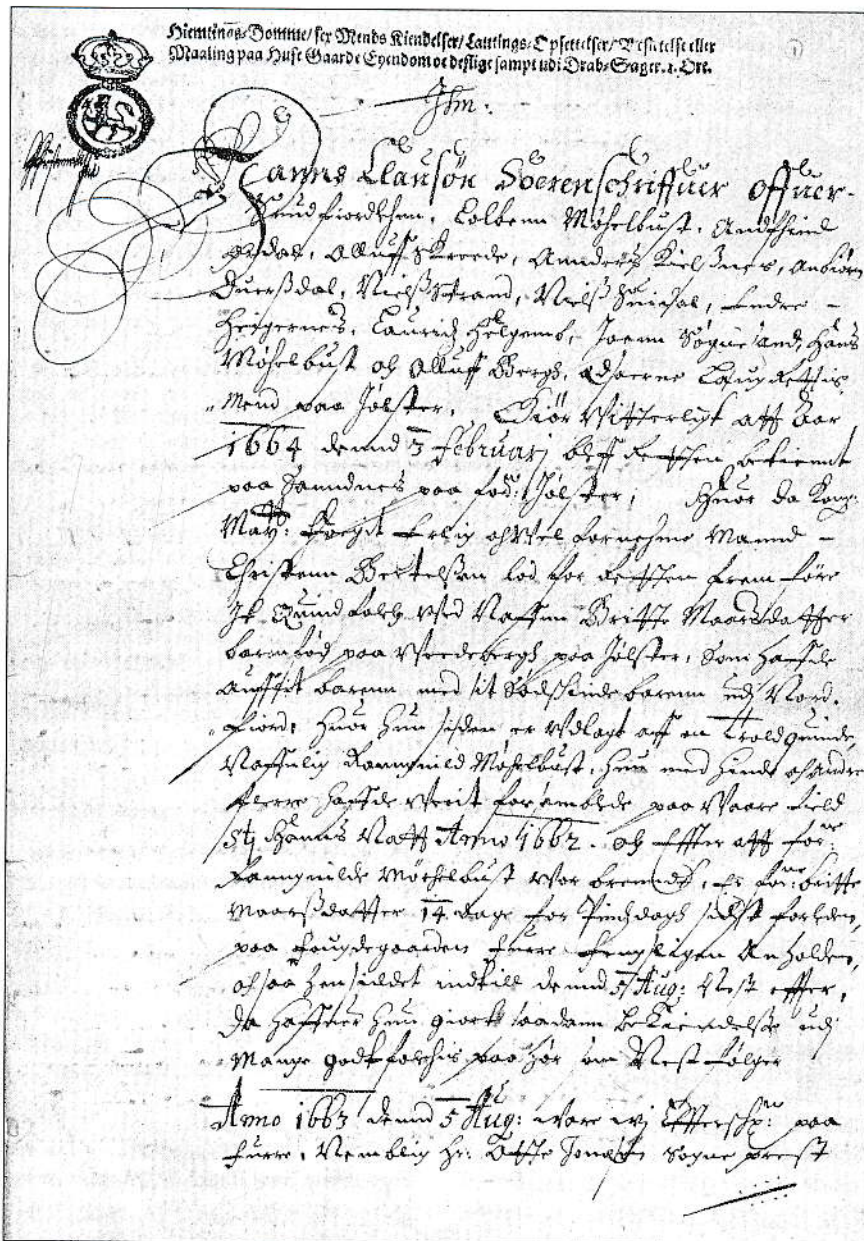 Hiemtings-Domme/ sex Mends Kiendelser/ Lautings-Opsettelser/ Besictelse eller
Maaling paa Huse Gaarde Eyendom oc deslige sampt udi Drab-Sager. 1. Ort.
1
Hanns Clausön Soerenschriffuer offuer
Sundfiordlehen, Colbenn Møhelbust, Andfind
Aardal, Alluff Skreede, Anders Kielsnes, Anbiørn
Huersdal, Niels Strand, Niels Huiisal, Endre -
Heigernes, Lauridz Helgemb, Joenn Søgnesand, Hans
Møhelbust och Alluff Bergh, Edsorne Laug Rettis
Mend paa Jølster, Giør Vitterligt att Aar
1664 dennd 3 Februarj bleff Retthen betiennt
paa Sanndnes paa for: Jølster, Huor da Kong:
May: Foegit Erlig och Vel fornehme Mannd -
Christenn Bertelsen lod for Retthen frem före
It Quindfolch ved Naffn Britte Maarsdatter
barnfød paa Veedebergh paa Jølster, Som haffde
Aufflit barenn med sit Södskindebarenn udj Nord-
fiord, Huor hun siden er udlagt aff en Troldquinde,
Naffnlig Ranngnild Møhelbust, hun med hinde och andre
flerre haffde Verit forsamblede paa Vaare field
St: Hanns Natt Anno 1662. och Effter att for:ne
Ranngnilde Møchelbust Vor brennd, Er for:ne Britte
Maarsdatter 14 dage for Pinchdagh sidst forleden,
paa Fougdegaarden Furre Fengsligen Anholden,
och saa hensiddet indtill dennd 5 Aug: Nest effter,
da haffuer hun giort saadann Bekiendelse udj
Mange godtfolchis paa hör som Nest følger
Anno 1663 dennd 5 Aug: Vare wj Effterschr:ne paa
Furre, Nemblig Hr: Otte Jensen Sogne prest